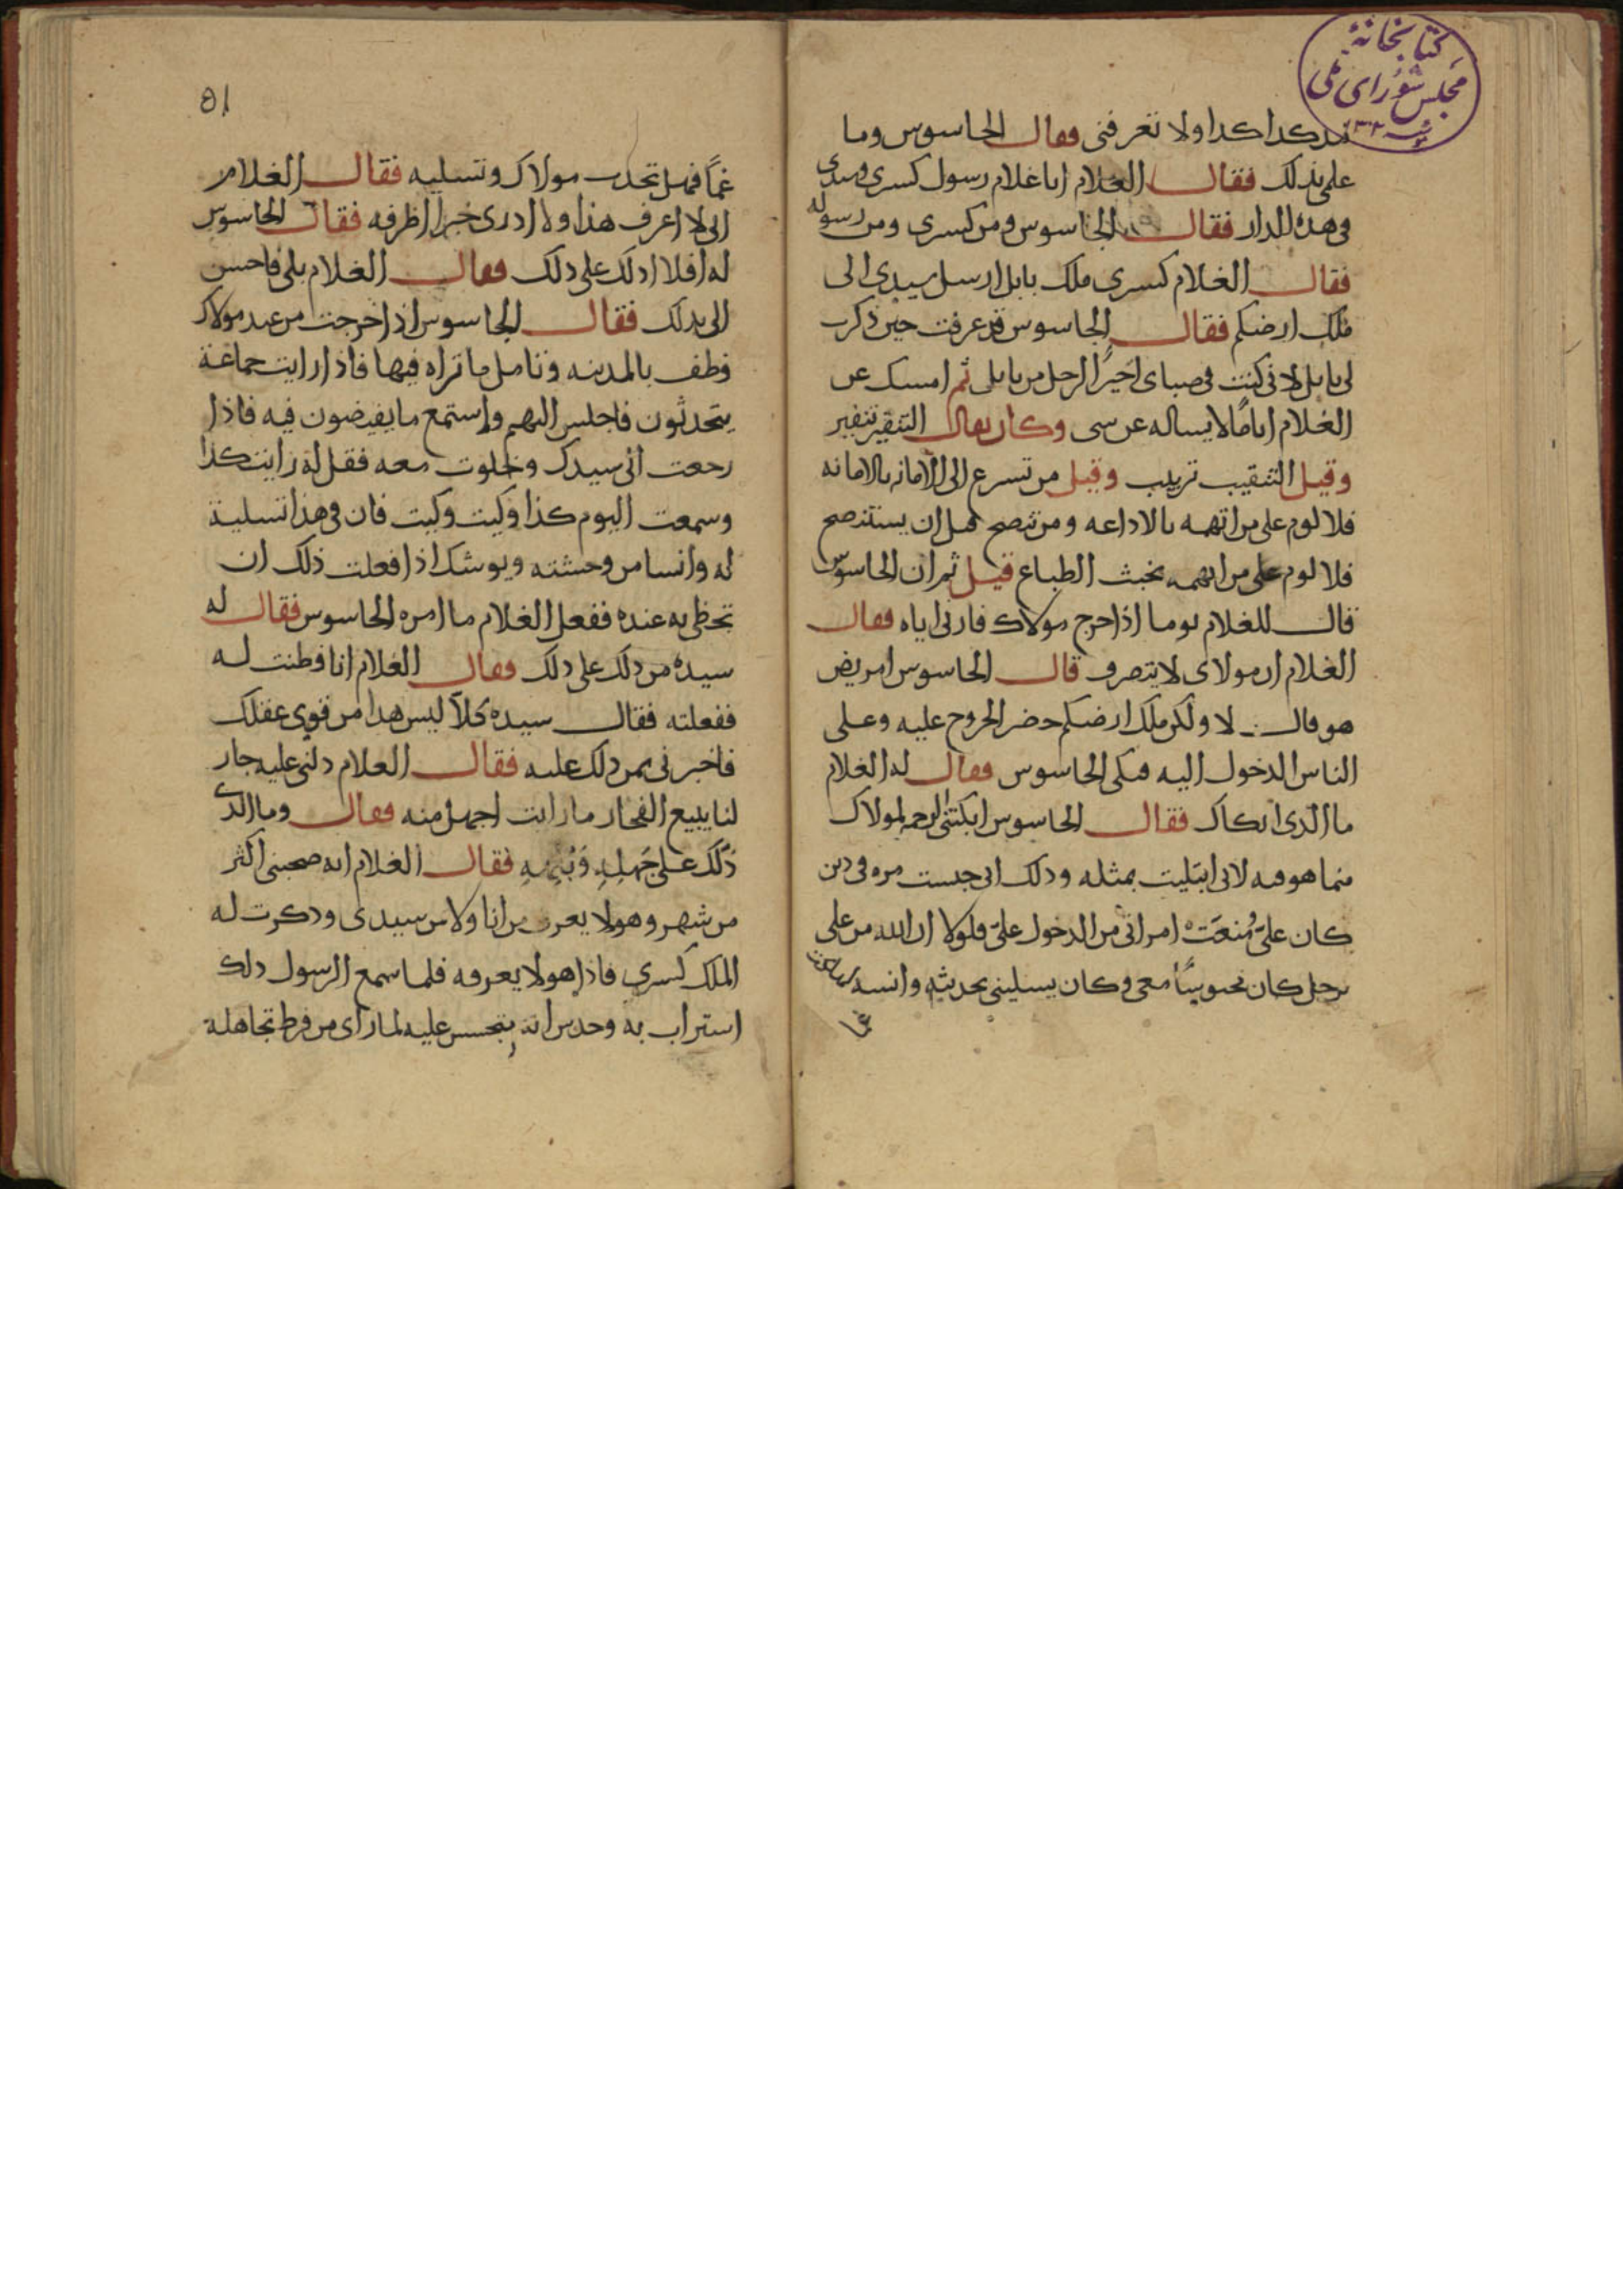 كتابخانهٔ
مجلس شورای ملی
كدا كدا ولا تعرفنى فقال الجاسوس وما
علمى بذلك فقال الغلام انا غلام رسول كسرى وسيدى
فى هذه الدار فقال الجاسوس ومن كسرى ومن رسوله
فقال الغلام كسرى ملك بابل ارسل سيدى الى
ملك ارضكم فقال الجاسوس قد عرفت حين ذكرت
لى بابل لانى كنت فى صباى اجيرا لرجل من بابل ثم امسك عن
الغلام اياما لا يساله عن شى وكان يقال التنقير تنفير
وقيل التنقيب تريب وقيل من تسرع الى الامانه بالامانه
فلا لوم على من اتهمه بالاذاعه ومن تنصح قبل ان يستنصح
فلا لوم على من اتهمه بخبث الطباع قيل ثم ان الجاسوس
قال للغلام يوما اذا خرج مولاك فارنى اياه فقال
الغلام ان مولاى لا يتصرف قال الجاسوس امريض
هو قال لا ولكن ملك ارضكم حضر الخروج عليه وعلى
الناس الدخول اليه فبكى الجاسوس فقال له الغلام
ما الذى ابكاك فقال الجاسوس ابكتنى الرحمه لمولاك
مما هو فيه لانى ابتليت بمثله وذلك انى حبست مره فى دين
كان علىّ ومُنعت امراتى من الدخول علىّ فلولا ان الله من على
برجل كان محبوسًا معى وكان يسلينى بحديثه وانسه
غما
٥١
غمًا فهل تحدث مولاك وتسليه فقال الغلام
انى لا اعرف هذا ولا ادرى خبرا اظرفه فقال الجاسوس
له افلا ادلك على ذلك فقال الغلام بلى فاحسن
الى بذلك فقال الجاسوس اذا خرجت من عند مولاك
فطف بالمدينه وتامل ما تراه فيها فاذا رايت جماعة
يتحدثون فاجلس اليهم واستمع ما يفيضون فيه فاذا
رجعت الى سيدك وخلوت معه فقل له رايت كذا
وسمعت اليوم كذا وكيت وكيت فان فى هذا تسلية
له وانسا من وحشته ويوشك اذا فعلت ذلك ان
تحظى به عنده ففعل الغلام ما امره الجاسوس فقال له
سيده من دلك على ذلك فقال الغلام انا فطنت له
ففعلته فقال سيده كلا ليس هذا من قوى عقلك
فاخبرنى بمن دلك عليه فقال الغلام دلنى عليه جار
لنا يبيع الفخار ما رايت اجهل منه فقال وما الذى
دلك على جهله فقال الغلام انه صحبنى اكثر
من شهر وهو لا يعرف من انا ولا من سيدى وذكرت له
الملك كسرى فاذا هو لا يعرفه فلما سمع الرسول ذلك
استراب به وحدس انه يتجسس عليه لما راى من فرط تجاهله